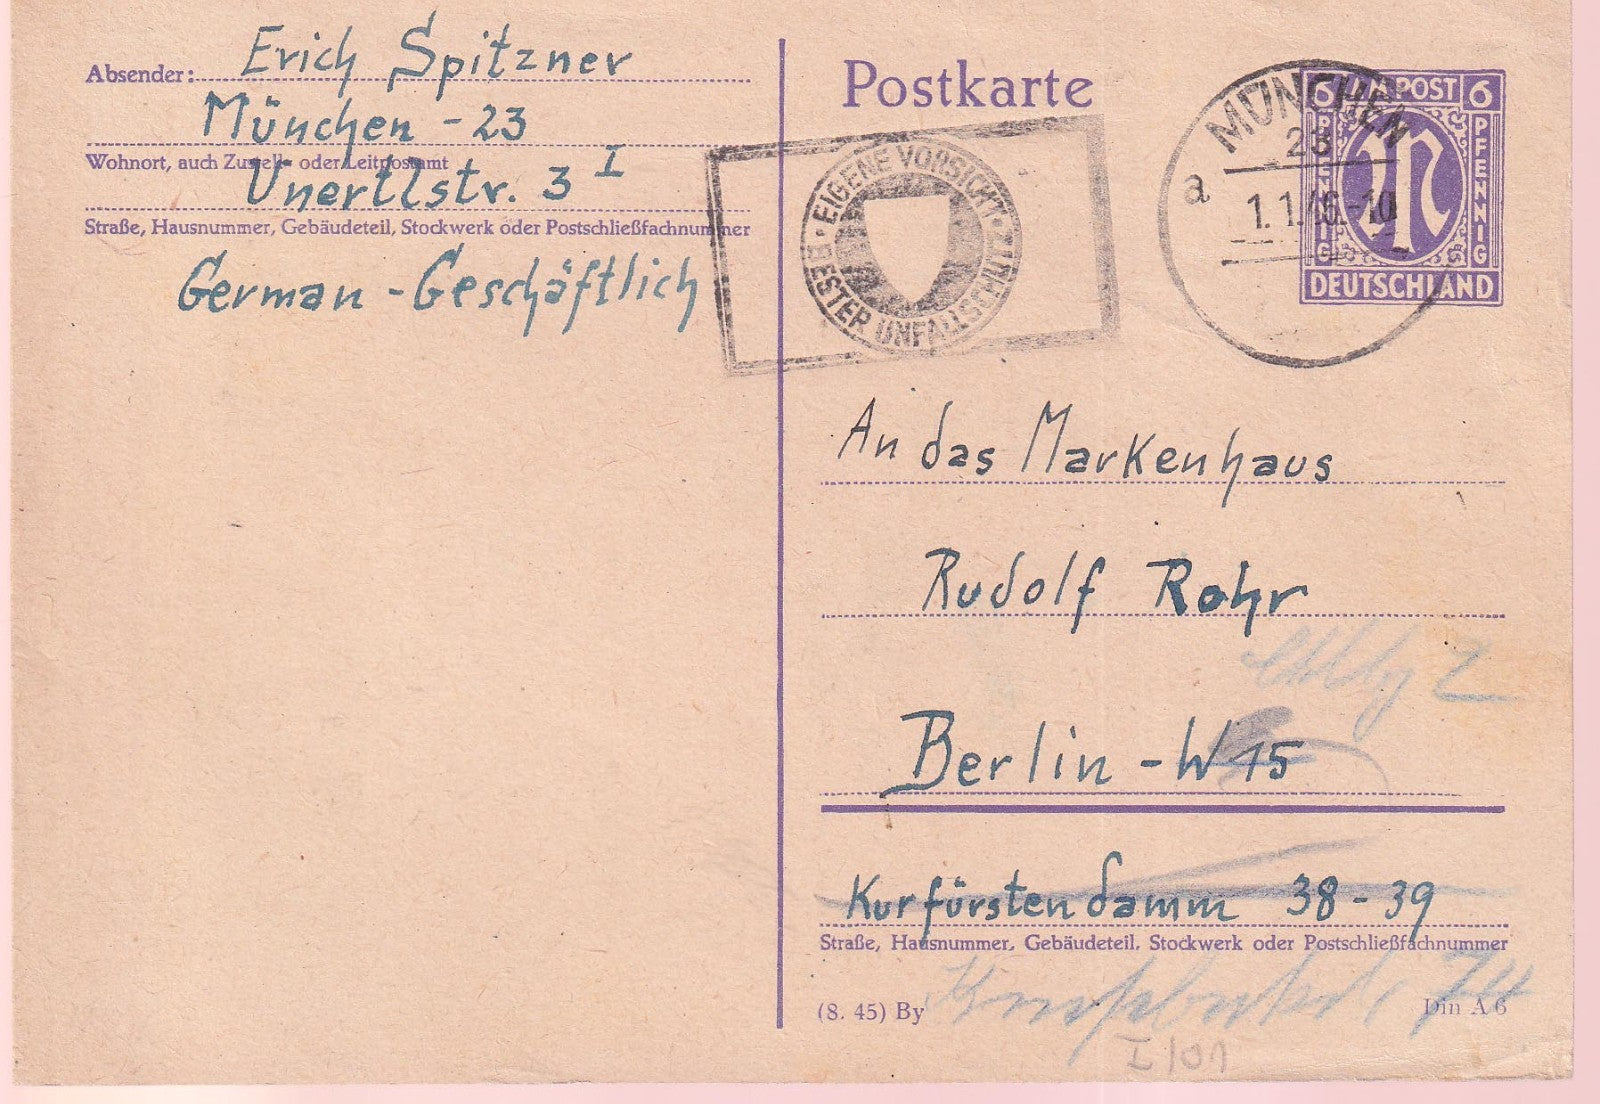 Absender: Erich Spitzner
München - 23
Wohnort, auch Zustell- oder Leitpostamt
Unertlstr. 3 I
Straße, Hausnummer, Gebäudeteil, Stockwerk oder Postschließfachnummer
German - Geschäftlich
Postkarte
EIGENE VORSICHT
BESTER UNFALLSCHUTZ
MÜNCHEN
23
a
1.1.46.-10
6 POST 6
PFENNIG
PFENNIG
DEUTSCHLAND
An das Markenhaus
Rudolf Rohr
Berlin - W 15
Kurfürstendamm 38 - 39
Straße, Hausnummer, Gebäudeteil, Stockwerk oder Postschließfachnummer
74
(8. 45) By
Din A 6